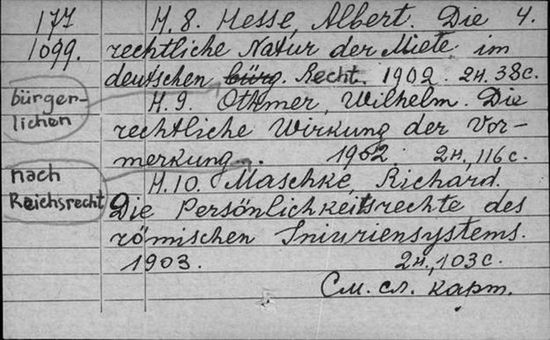 177 H. 8. Hesse, Albert. Die 4.
1099. rechtliche Natur der Miete im
deutschen bürg. Recht. 1902. 2н. 38с.
bürger-
lichen
H. 9. Othmer, Wilhelm. Die
rechtliche Wirkung der Vor-
merkung. 1902. 2н., 116с.
nach
Reichsrecht
H. 10. Maschke, Richard.
Die Persönlichkeitsrechte des
römischen Iniuriensystems.
1903. 2н., 103с.
См. сл. карт.